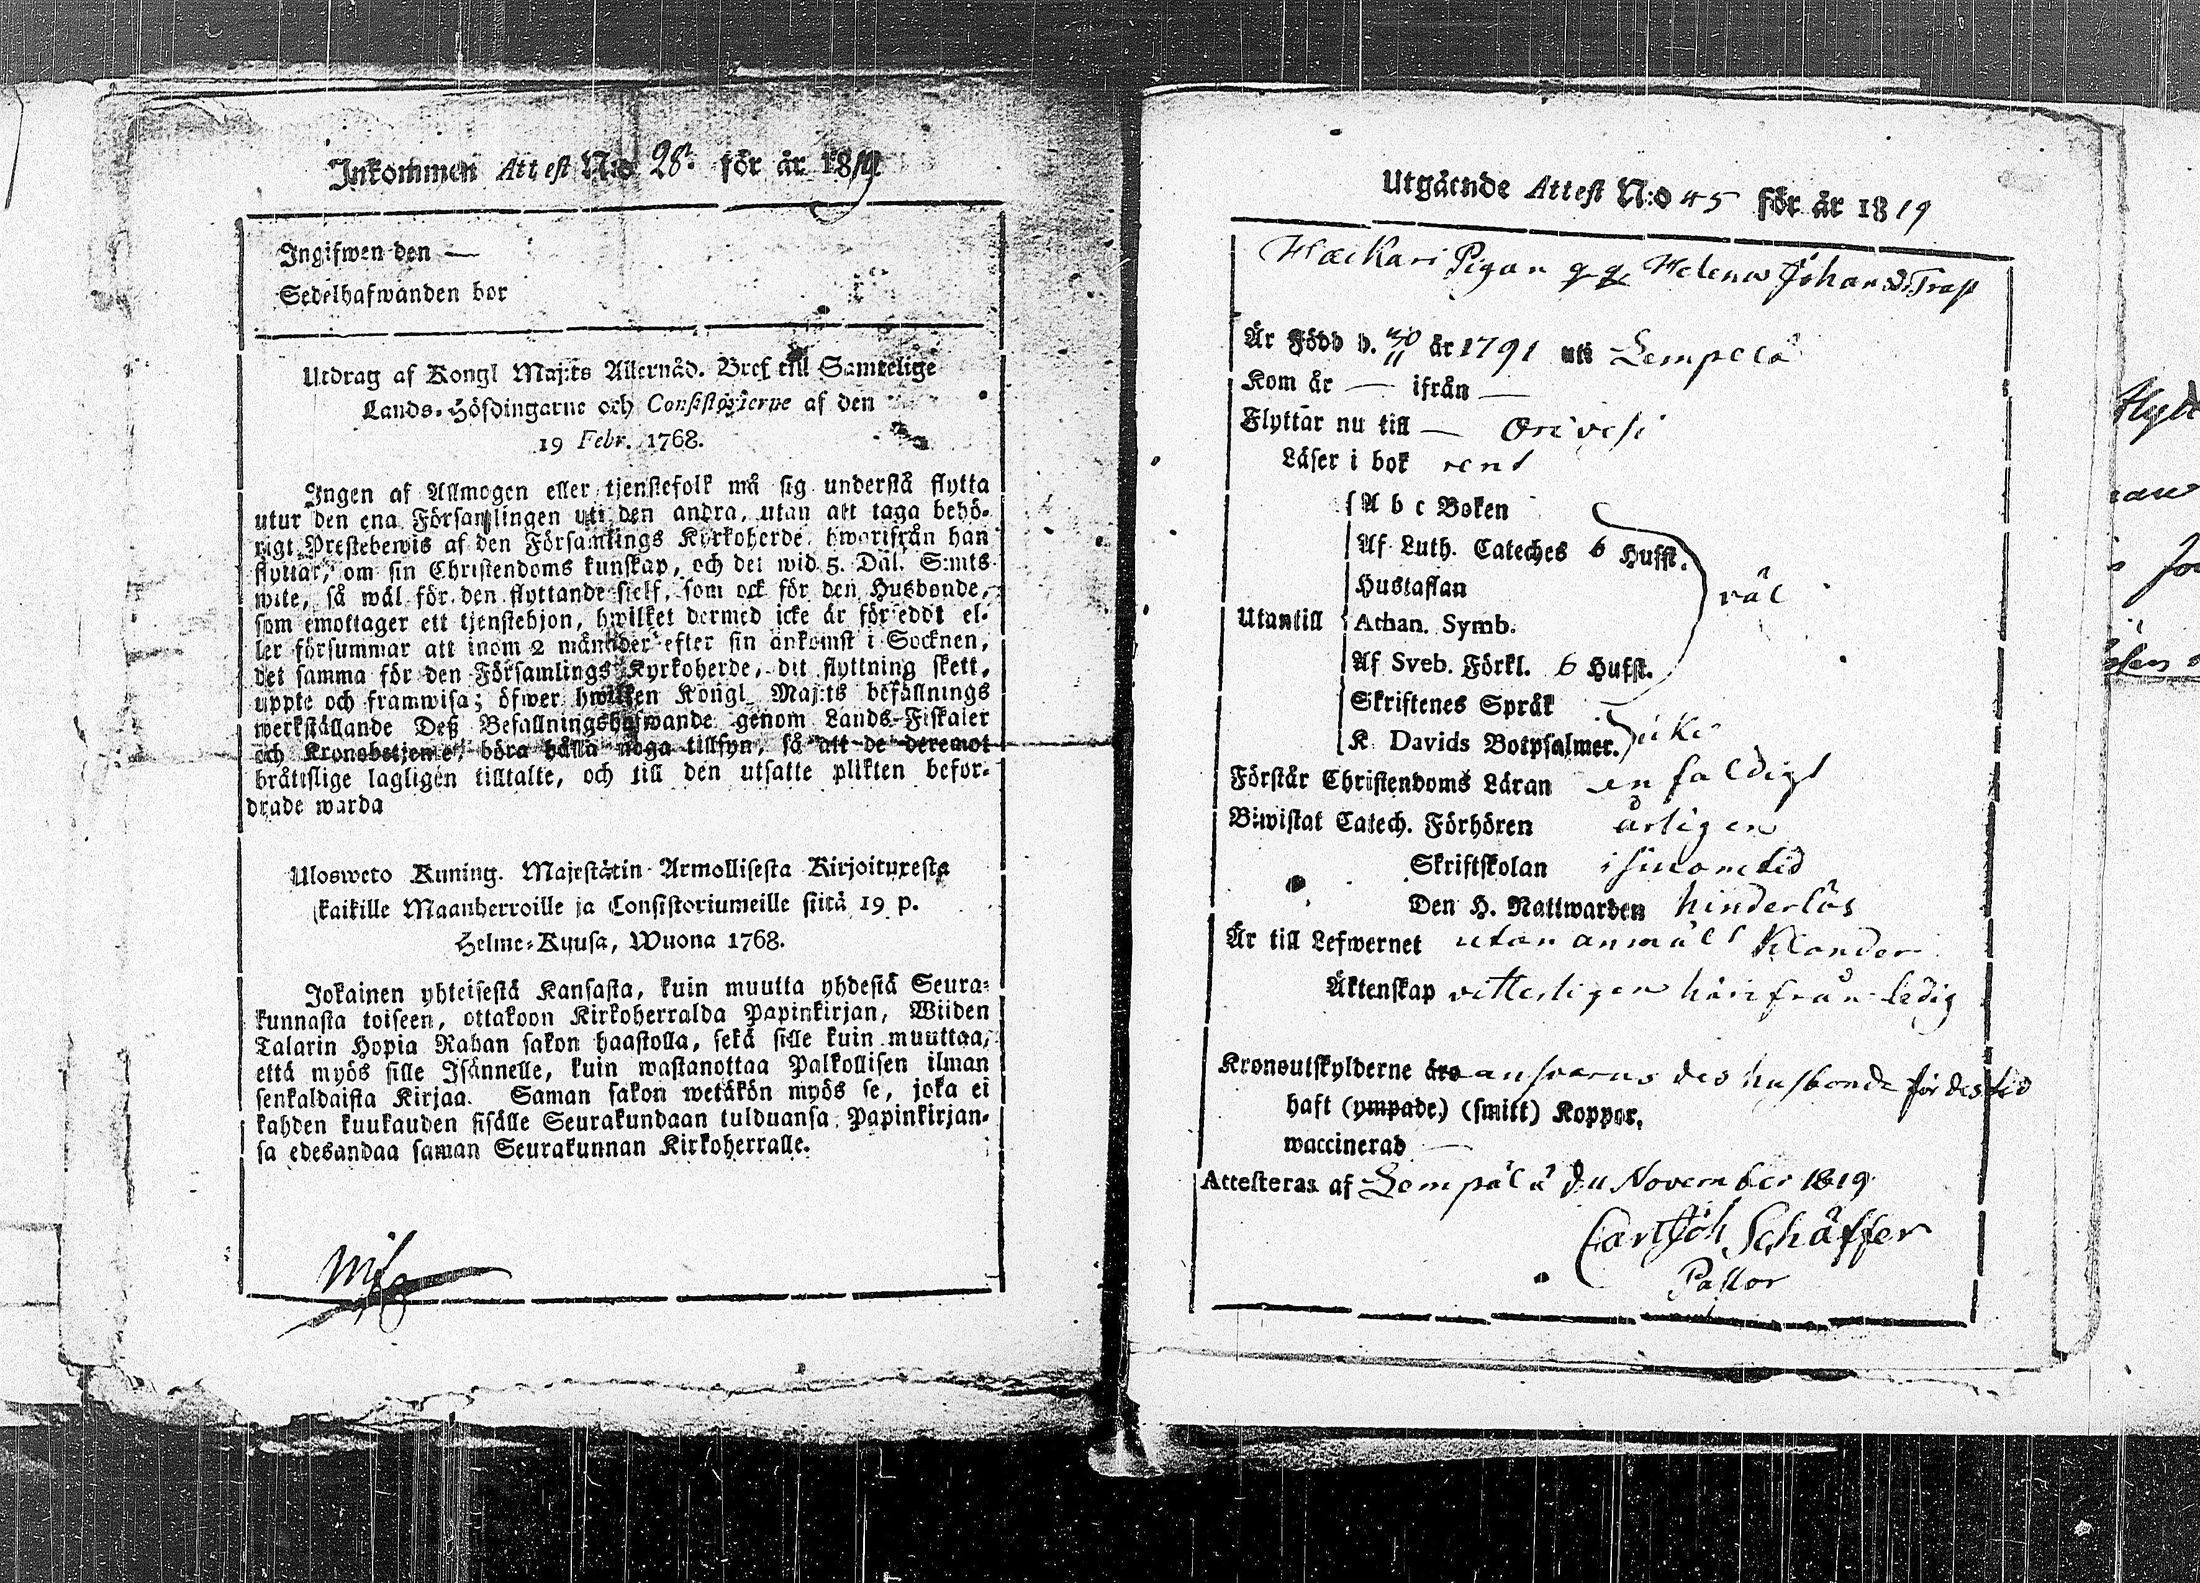 Inkommen Attest N:o 28. för år 1819
Ingifwen den —
Sedelhafwanden bor
Utdrag af Kongl Maj:ts Allernåd. Bref till Samtelige
Lands-Höfdingarne och Consistorierne af den
19 Febr. 1768.
Ingen af Allmogen eller tjenstefolk må sig understå flytta
utur den ena Församlingen uti den andra, utan att taga behö-
rigt Prestebewis af den Församlings Kyrkoherde, hworifrån han
flyttar, om sin Christendoms kunskap, och det wid 5. Dal. S:mts
wite, så wäl för den flyttande sielf, som ock för den Husbonde,
som emottager ett tjenstehjon, hwilket dermed icke är föreddt el-
ler försummar att inom 2 månader efter sin ankomst i Socknen,
det samma för den Församlings Kyrkoherde, dit flyttning skett,
uppte och framwisa; öfwer hwilken Kongl. Maj:ts befallnings
werkställande Deß Befallningshafwande genom Lands-Fiskaler
och Kronobetjente, böra hålla noga tillsyn, så att de deremot
bråttslige lagligen tilltalte, och till den utsatte plikten befor-
drade warda
Ulosweto Kuning. Majestätin Armollisesta Kirjoituxesta
kaikille Maanherroille ja Consistoriumeille siitä 19 p.
Helme-Kuusa, Wuona 1768.
Jokainen yhteisestä Kansasta, kuin muutta yhdestä Seura-
kunnasta toiseen, ottakoon Kirkoherralda Papinkirjan, Wiiden
Talarin Hopia Rahan sakon haastolla, sekä sille kuin muuttaa,
että myös sille Isännelle, kuin wastanottaa Palkollisen ilman
senkaldaista Kirjaa. Saman sakon wetäkön myös se, joka ei
kahden kuukauden sisälle Seurakundaan tulduansa Papinkirjan-
sa edesandaa saman Seurakunnan Kirkoherralle.
Utgående Attest N:o 45 för år 1819
Haikari Pigan Helena Johansd. Trast
Är Född d. 30/11 år 1791 uti Lempelä
Kom år — ifrån —
Flyttar nu till — Orivesi
Läser i bok rent
A b c Boken
Af Luth. Cateches 6 Hufst.
Hustaflan
väl
Utantill Athan. Symb.
Af Sveb. Förkl. 6 Hufst.
Skriftenes Språk
K. Davids Botpsalmer. icke
Förstår Christendoms Läran enfaldigt
Biwistat Catech. Förhören årligen
Skriftskolan i sinom tid
Den H. Nattwarden hinderlös
Är till Lefwernet utan anmält klander
Äktenskap vitterligen härifrån ledig
Kronoutskylderne äro ansvarar des husbonde för des tid
haft (ympade) (smitt) Koppor,
waccinerad —
Attesteras af Lempälä d. 11 November 1819.
Carl Joh Schäffer
Pastor